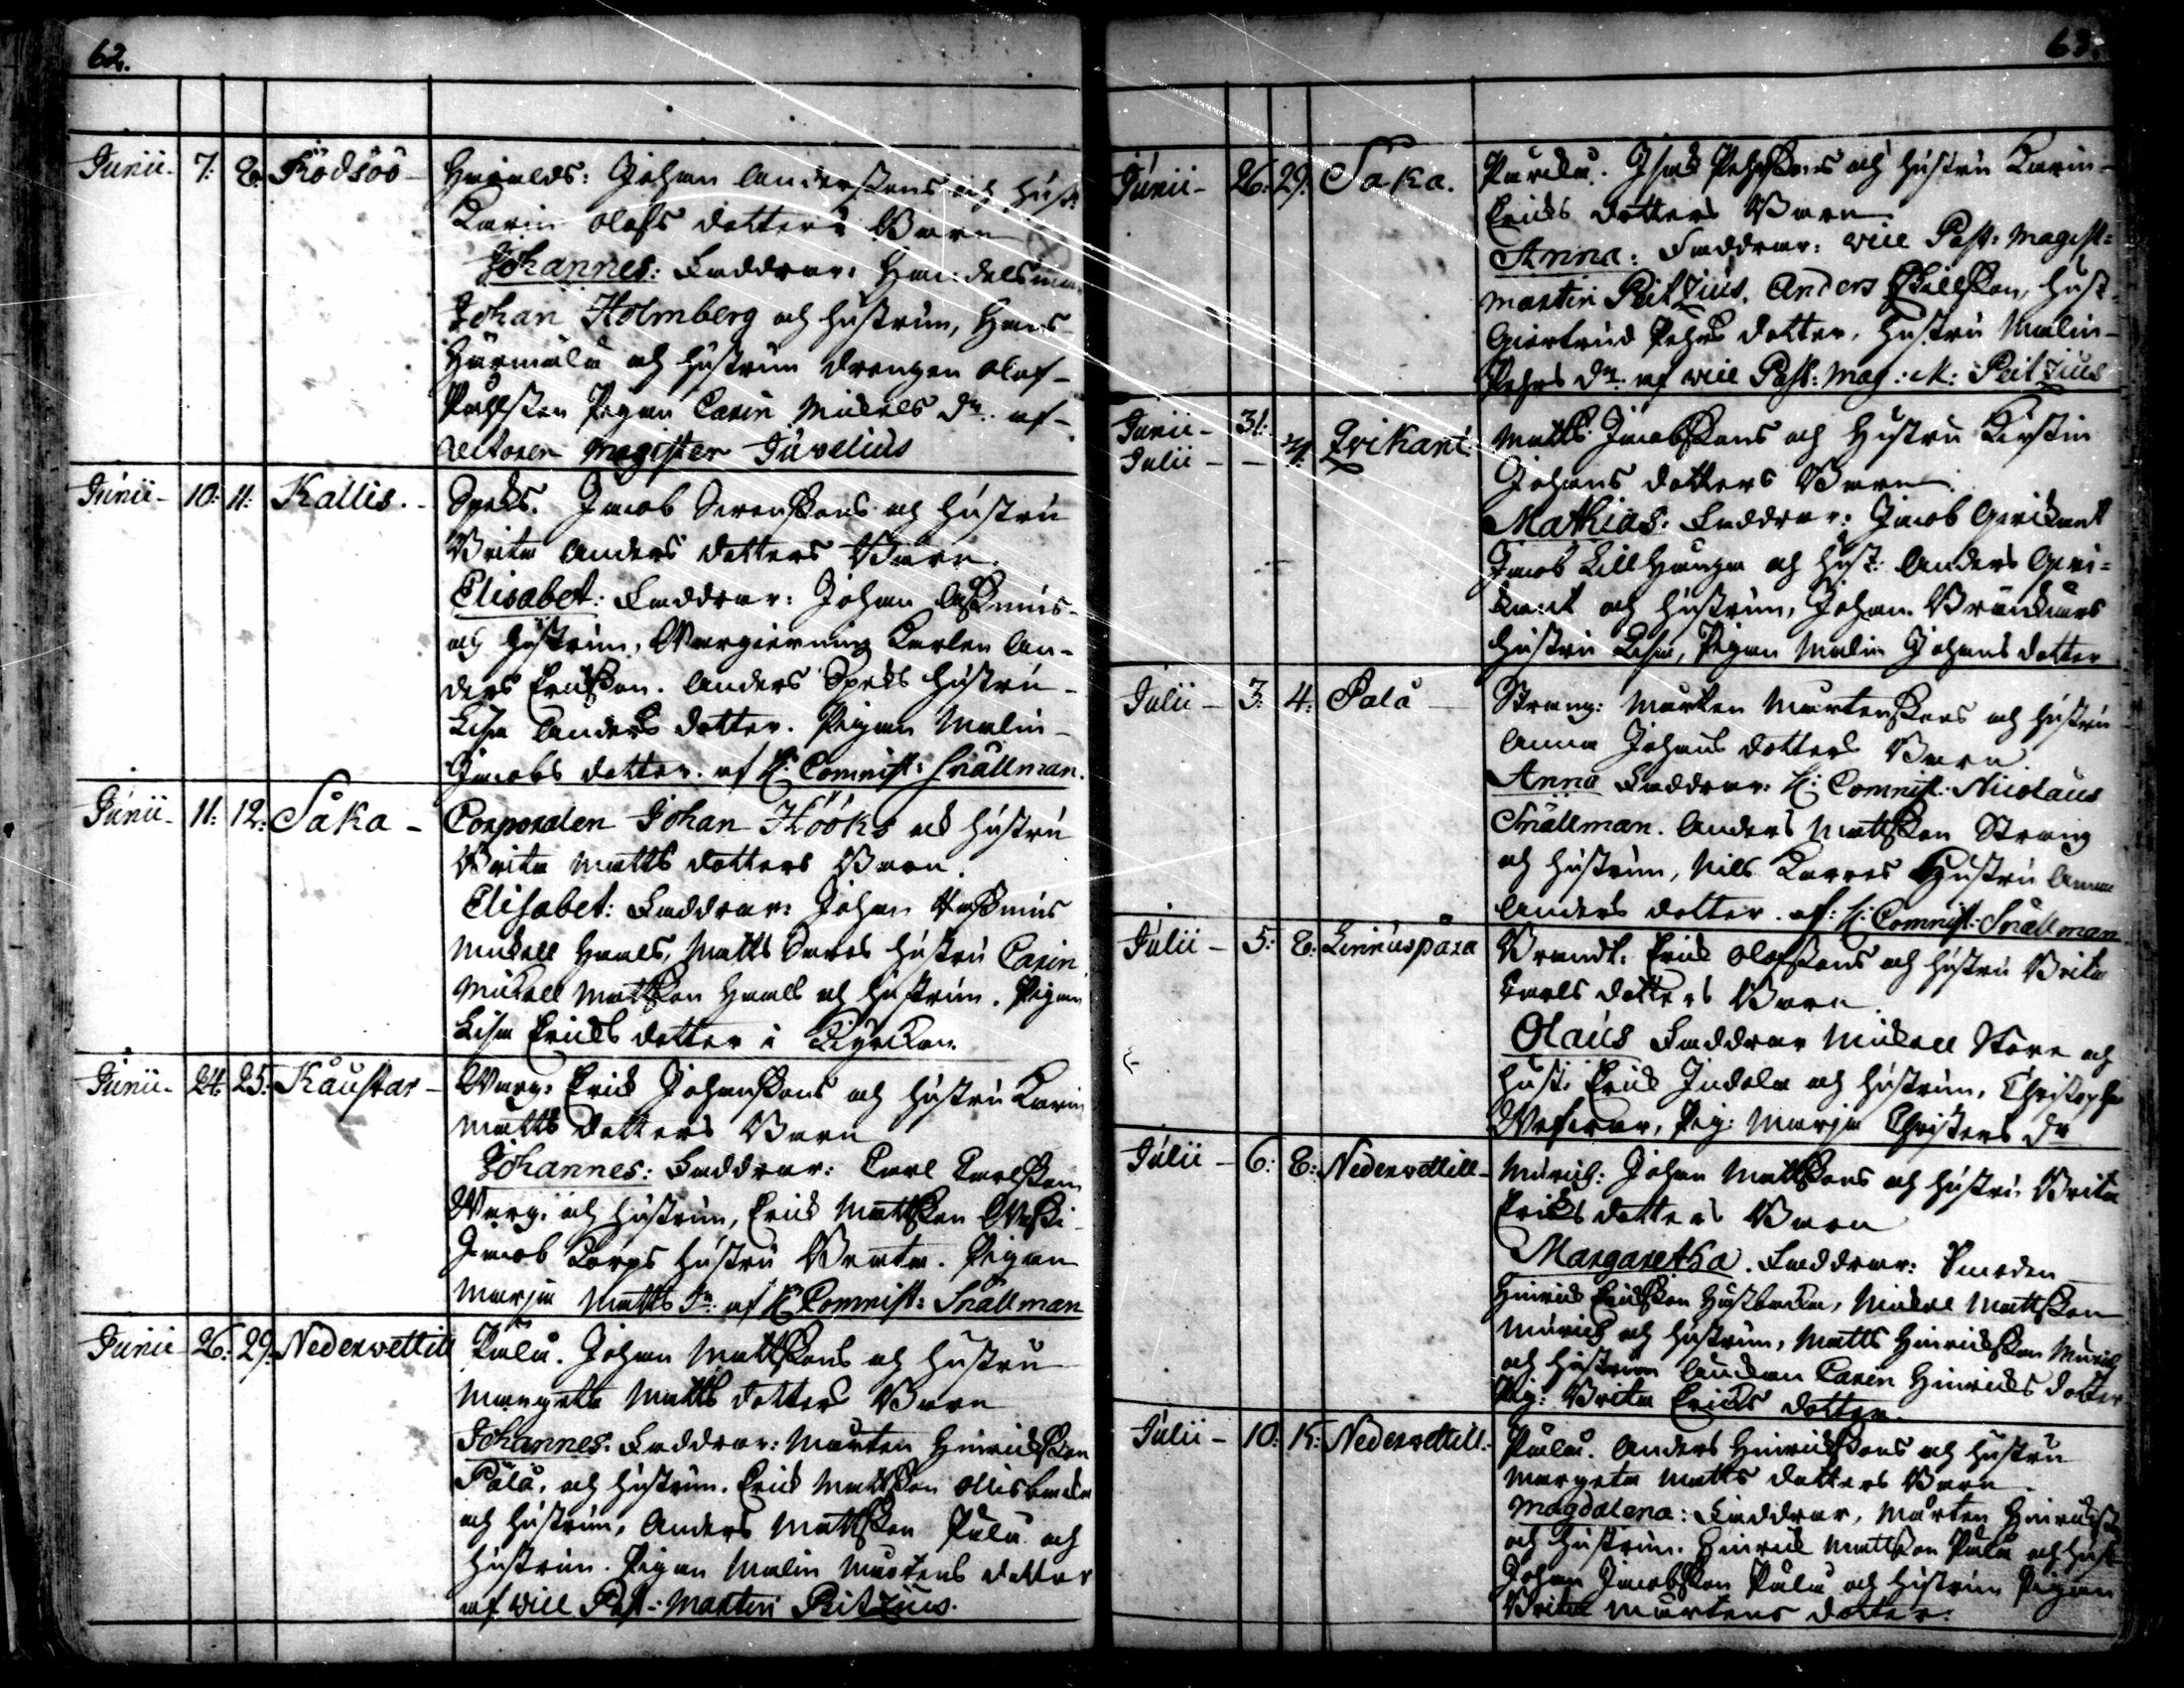 62.
Junii. 7: 8. Rödsöö - Hasalds: Johan Anderssons och hust:
Karin Olofs dotters Barn
Johannes: Faddrar: Handelsman
Johan Holmberg och hustrun, Hans
Härmälä och hustrun drengen Olof
Påhlsson Pigan Carin Mickels dr. af
Magister Juvelius
Junii - 10: 11: Kallis. - Speks. Jacob Svenssons och hustru
Brita Anders dotters Barn.
Elisabet: Faddrar: Johan
och hustrun, Karlen An-
ders Ericksson. Anders Speks hustru
Lisa Anders dotter. Pigan Malin
Jacobs dotter. af H: Comnist: Snällman.
Junii - 11: 12: Såka - Corporalen Johan Hööks och hustru
Brita Matts dotters Barn.
Elisabet: Faddrar: Johan
Mickell Haals, Matts hustru Carin
Mickell Mattsson Haals och hustrun. Pigan
Lisa Ericks dotter i Kyrckan.
Junii - 24. 25. Kåustar - Warg: Erick Johanssons och hustru Karin
Matts dotters Barn
Johannes: Faddrar: Carl Carlsson
Warg. och hustrun, Erick Mattsson
Jacob Korps hustru Beata. Pigan
Marja Matts dr. af H: Comnist: Snällman
Junii 26: 29: Nederwettill Pulu. Johan Mattssons och hustru
Margeta Matts dotters Barn
Johannes. Faddrar: Mårten Hinricksson
Pålå, och hustrun. Erick Mattsson Ollisbacka
och hustrun, Anders Mattsson Pulu och
hustrun. Pigan Malin Mårtens dotter
af wice Past: Martin Peitzius.
63.
Junii - 26: 29: Såka. Purilu. Isak Pehrssons och hustru Karin
Ericks dotters Barn
Anna: Faddrar: wice Past: Magist:
Martin Peitzius. Anders hust.
Giertrud Pehrs dotter, hustru Malin
Pehrs dr. af wice Past: Mag: M: Peitzius
Junii - 31:
Julii - - 4. Zrikant. Matts Jacobssons och Hustru Kirstin
Johans dotters Barn.
Mathias. Faddrar: Jacob Gerikant
Jacob Lill Hauga och hust: Anders Geri=
kant och hustrun, Johan
hustru Lisa, Pigan Malin Johans dotter
Julii - 3: 4: Palå - Strang: Mårten Mårtenssons och hustru
Anna Johans dotters Barn
Anna Faddrar: H: Comnist: Nicolaus
Snällman. Anders Mattsson Strang
och hustrun, Nils Karres Hustru Anna
Anders dotter. af: H: Comnist: Snällman
Julii - 5: 8: Linnuspära Brandt: Erick Olofssons och hustru Brita
Carls dotters Barn
Olaus Faddrar Mickell Store och
hust: Erick Indola och hustrun, Christopher
Pig: Marja Christers dr
Julii - 6: 8: Nederwettill - Murick: Johan Mattssons och hustru Brita
Ericks dotters Barn
Margaretha. Faddrar: Smeden
Hinrick Ericksson Hästbacka, Mickel Mattsson
Murick och hustrun, Matts Hinricksson Murick
och hustrun Enckan Caren Hinricks dotter
Pig: Brita Ericks dotter.
Julii - 10: 15: Nederwettill. Pulu. Anders Hinrickssons och hustru
Margeta Matts dotters Barn.
Magdalena: Faddrar, Mårten Hinricksson
och hustrun. Hinrick Mattsson Pulu och hust
Johan Jacobsson Pulu och hustrun Pigan
Brita Mårtens dotter.